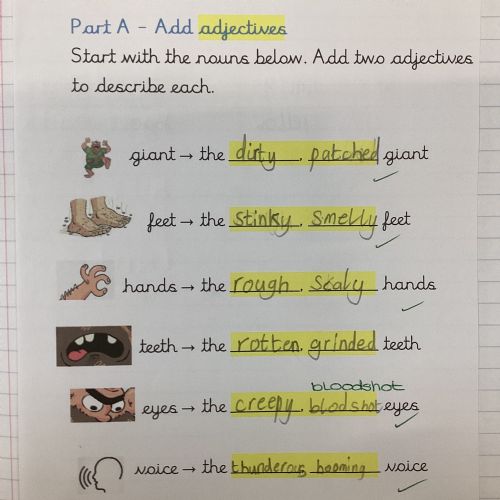 Part A - Add adjectives
Start with the nouns below. Add two adjectives
to describe each.
giant → the dirty, patched giant
feet → the stinky, smelly feet
hands → the rough, scaly hands
teeth → the rotten, grinded teeth
bloodshot
eyes → the creepy, blodshot eyes
voice → the thunderous, booming voice